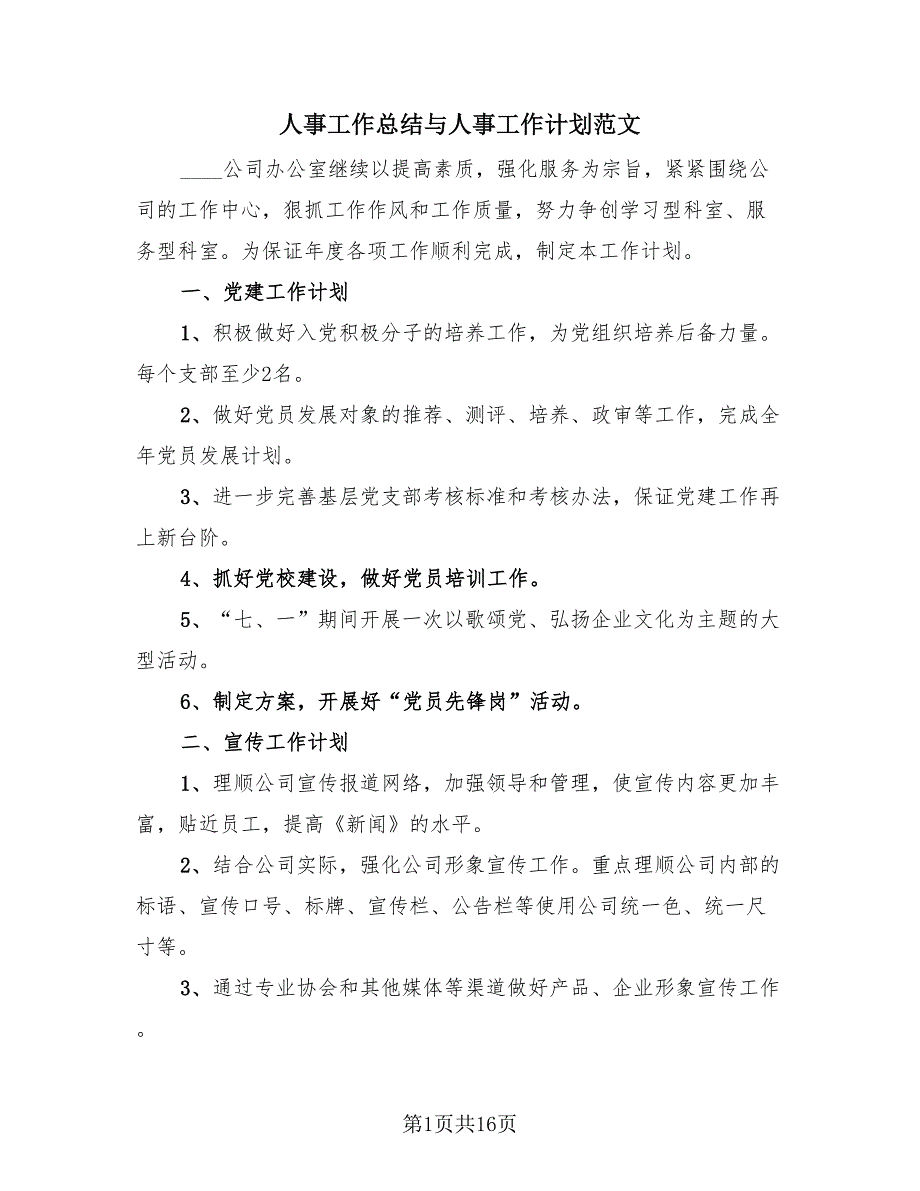 人事工作总结与人事工作计划范文
____公司办公室继续以提高素质，强化服务为宗旨，紧紧围绕公
司的工作中心，狠抓工作作风和工作质量，努力争创学习型科室、服
务型科室。为保证年度各项工作顺利完成，制定本工作计划。
一、党建工作计划
1、积极做好入党积极分子的培养工作，为党组织培养后备力量。
每个支部至少2名。
2、做好党员发展对象的推荐、测评、培养、政审等工作，完成全
年党员发展计划。
3、进一步完善基层党支部考核标准和考核办法，保证党建工作再
上新台阶。
4、抓好党校建设，做好党员培训工作。
5、“七、一”期间开展一次以歌颂党、弘扬企业文化为主题的大
型活动。
6、制定方案，开展好“党员先锋岗”活动。
二、宣传工作计划
1、理顺公司宣传报道网络，加强领导和管理，使宣传内容更加丰
富，贴近员工，提高《新闻》的水平。
2、结合公司实际，强化公司形象宣传工作。重点理顺公司内部的
标语、宣传口号、标牌、宣传栏、公告栏等使用公司统一色、统一尺
寸等。
3、通过专业协会和其他媒体等渠道做好产品、企业形象宣传工作
。
第1页共16页